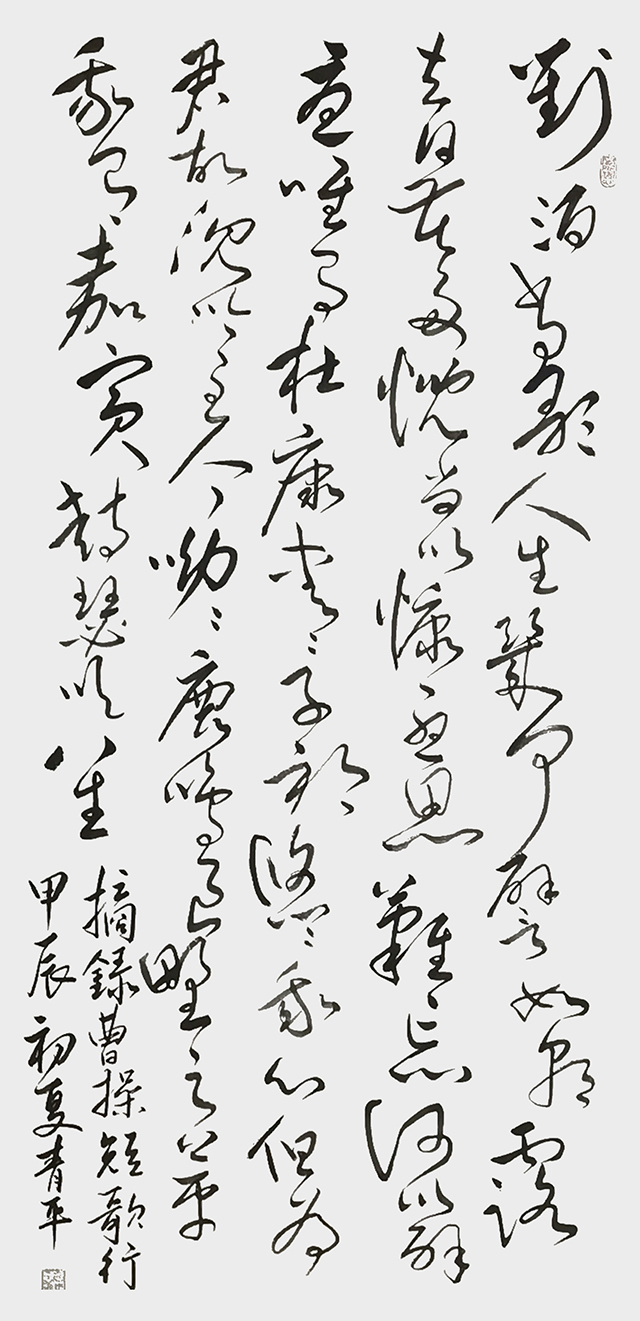 對酒當歌人生幾何譬如朝露
去日苦多慨當以慷憂思難忘何以解
憂唯有杜康青〻子衿悠〻我心但為
君故沈吟至今呦〻鹿鳴食野之苹
我有嘉賓鼓瑟吹笙
摘錄曹操短歌行
甲辰初夏青平